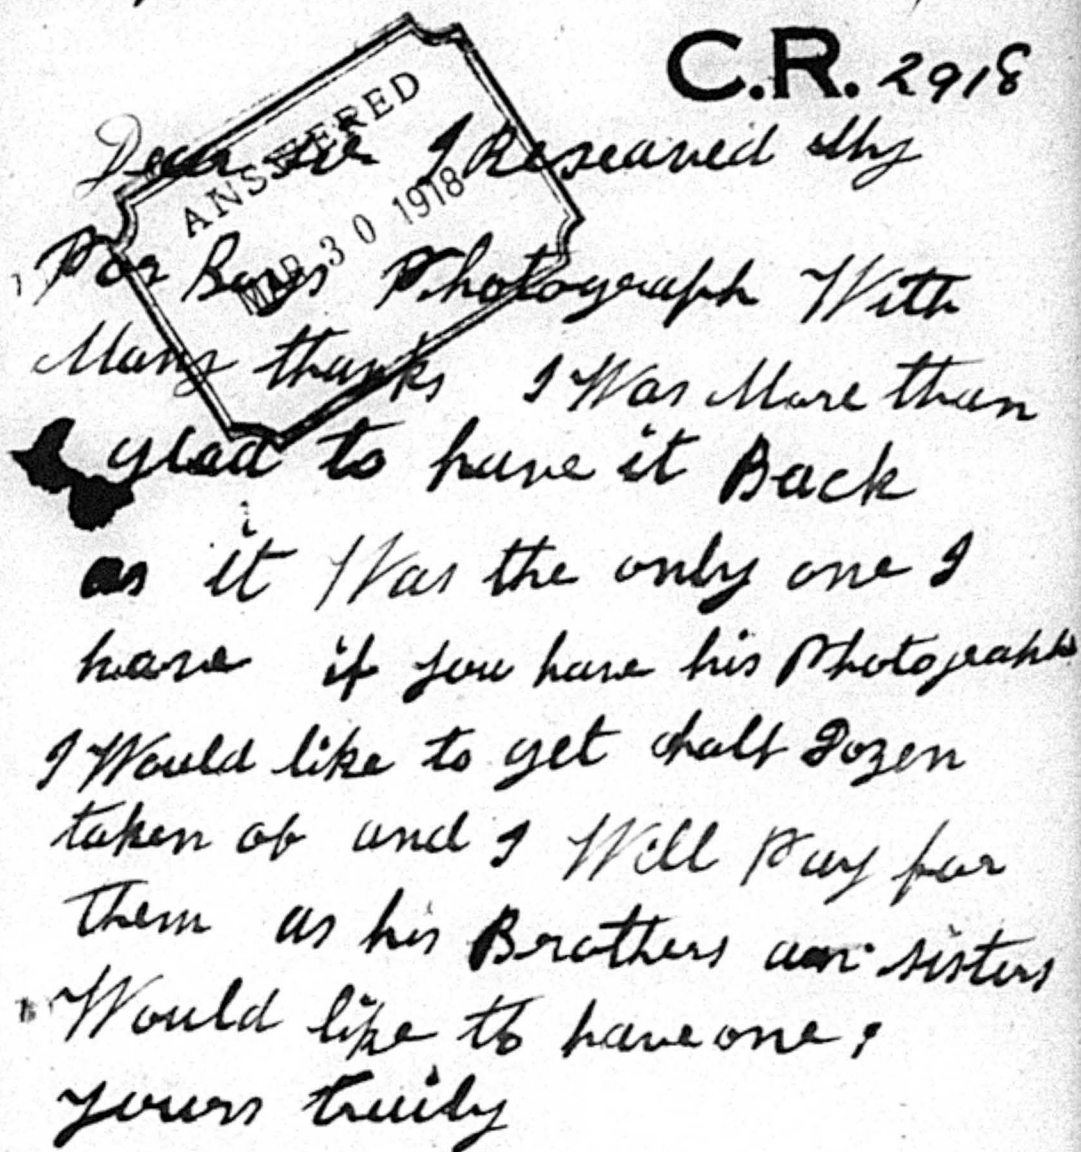 C.R. 2918
ANSWERED
MAR 30 1918
Dear Sir I Reseaved My
Por Boys Photograph With
Many thanks I Was More than
glad to have it Back
as it Was the only one I
have if you have his Photograph
I Would like to get half Dozen
taken of and I Will Pay for
them as his Brothers an sisters
Would like to have one.
yours truily